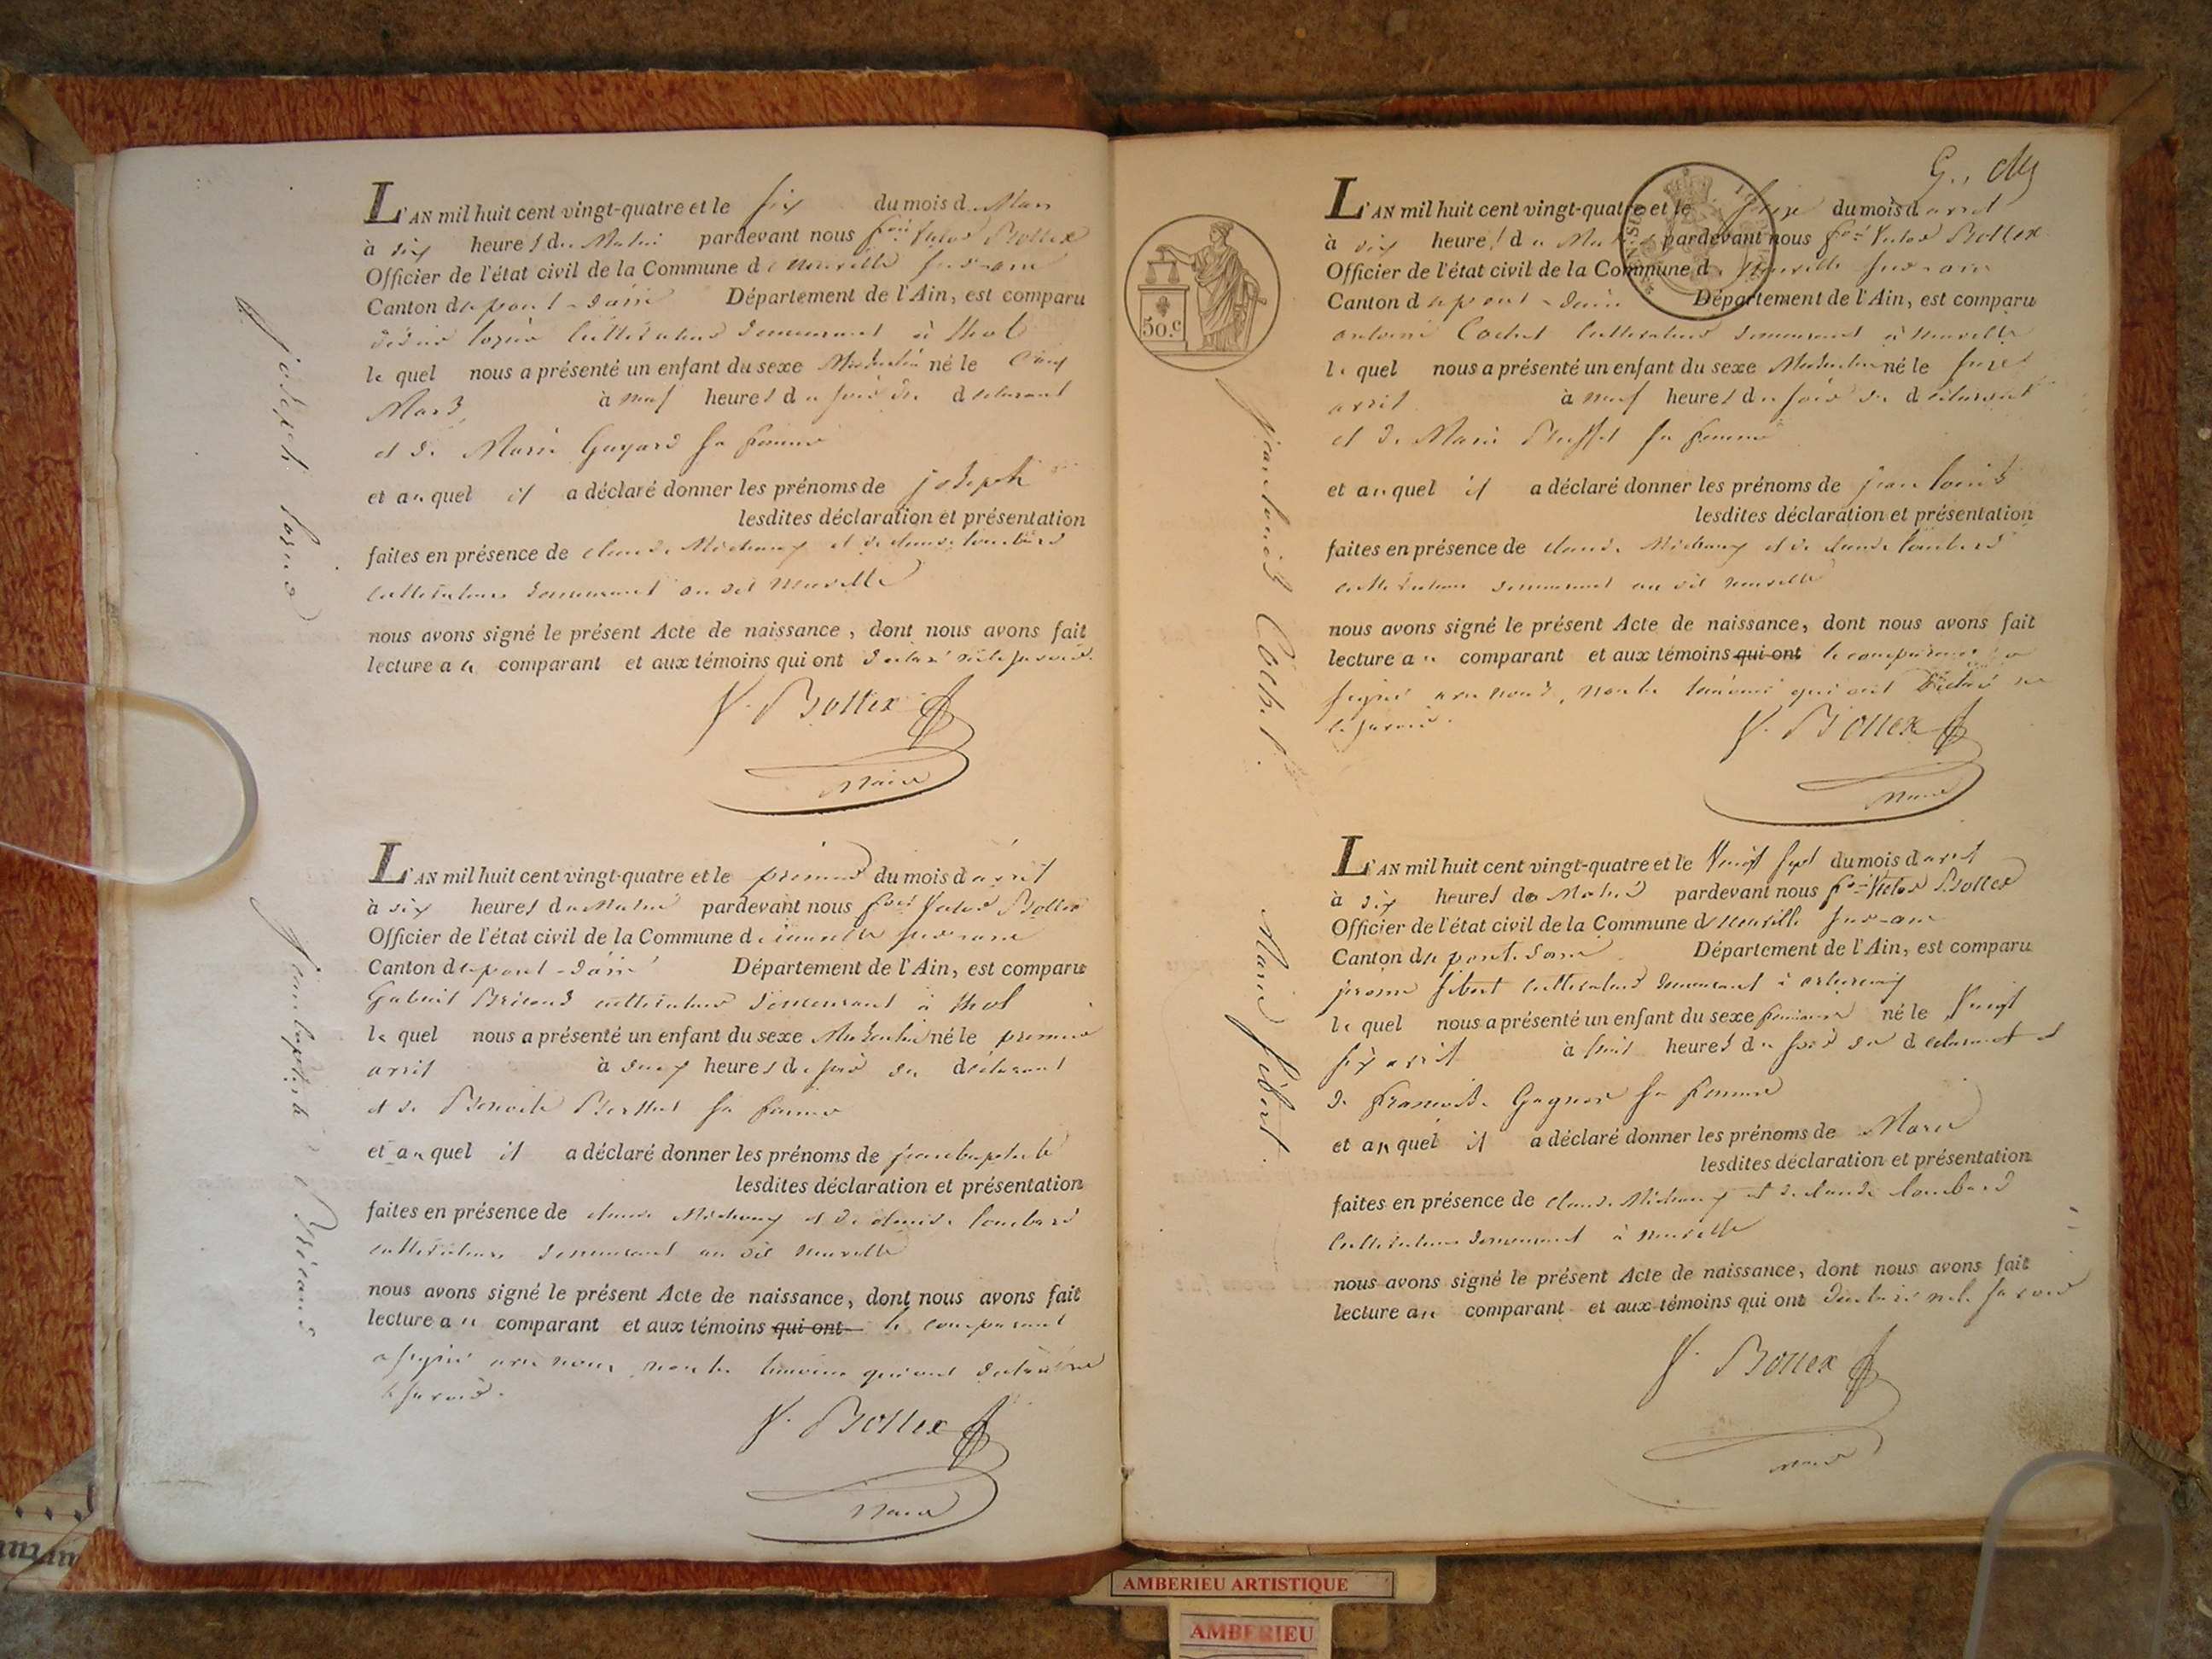 L'AN mil huit cent vingt-quatre et le six du mois de Mars
à six heures du Matin pardevant nous Victor Bollex
Officier de l'état civil de la Commune de neuville sur-ain
Canton de pont-d'ain Département de l'Ain, est comparu
cultivateur demeurant à thol
le quel nous a présenté un enfant du sexe Masculin né le Cinq
Mars à neuf heures du soir du déclarant
et de Marie Guyard sa femme
et auquel il a déclaré donner les prénoms de joseph
lesdites déclaration et présentation
faites en présence de claude Michaux et de claude lombard
cultivateurs demeurant au dit neuville
nous avons signé le présent Acte de naissance, dont nous avons fait
lecture au comparant et aux témoins qui ont déclaré ne le savoir.
V. Bollex
Maire
joseph
L'AN mil huit cent vingt-quatre et le premier du mois d'avril
à six heures du Matin pardevant nous Victor Bollex
Officier de l'état civil de la Commune de neuville sur-ain
Canton de pont-d'ain Département de l'Ain, est comparu
Gabriel cultivateur demeurant à thol
le quel nous a présenté un enfant du sexe Masculin né le premier
avril à deux heures du soir du déclarant
et de Benoite sa femme
et auquel il a déclaré donner les prénoms de jean baptiste
lesdites déclaration et présentation
faites en présence de claude Michaux et de claude lombard
cultivateurs demeurant au dit neuville
nous avons signé le présent Acte de naissance, dont nous avons fait
lecture au comparant et aux témoins qui ont le comparant
a signé avec nous, non les temoins qui ont déclaré ne
le savoir.
V. Bollex
Maire
jean baptiste
50.c
L'AN mil huit cent vingt-quatre et le seize du mois d'avril
à six heures du Matin pardevant nous Victor Bollex
Officier de l'état civil de la Commune de Neuville sur-ain
Canton de pont-d'ain Département de l'Ain, est comparu
antoine Cochet cultivateur demeurant à neuville
le quel nous a présenté un enfant du sexe Masculin né le
avril à neuf heures du soir du déclarant
et de Marie sa femme
et auquel il a déclaré donner les prénoms de jean louis
lesdites déclaration et présentation
faites en présence de claude Michaux et de claude lombard
cultivateurs demeurant au dit neuville
nous avons signé le présent Acte de naissance, dont nous avons fait
lecture au comparant et aux témoins qui ont le comparant a
signé avec nous, non les temoins qui ont déclaré ne
le savoir.
V. Bollex
Maire
jean louis Cochet.
L'AN mil huit cent vingt-quatre et le Vingt Sept du mois d'avril
à six heures du Matin pardevant nous Victor Bollex
Officier de l'état civil de la Commune de Neuville sur-ain
Canton de pont-d'ain Département de l'Ain, est comparu
jérome Sibert cultivateur demeurant à
le quel nous a présenté un enfant du sexe feminin né le Vingt
six avril à huit heures du soir du déclarant et
de francoise Gagneur sa femme
et auquel il a déclaré donner les prénoms de Marie
lesdites déclaration et présentation
faites en présence de claude Michaux et de claude lombard
cultivateurs demeurant à neuville
nous avons signé le présent Acte de naissance, dont nous avons fait
lecture au comparant et aux témoins qui ont déclaré ne le savoir
V. Bollex
Maire
Marie Sibert.
AMBERIEU ARTISTIQUE
AMBERIEU